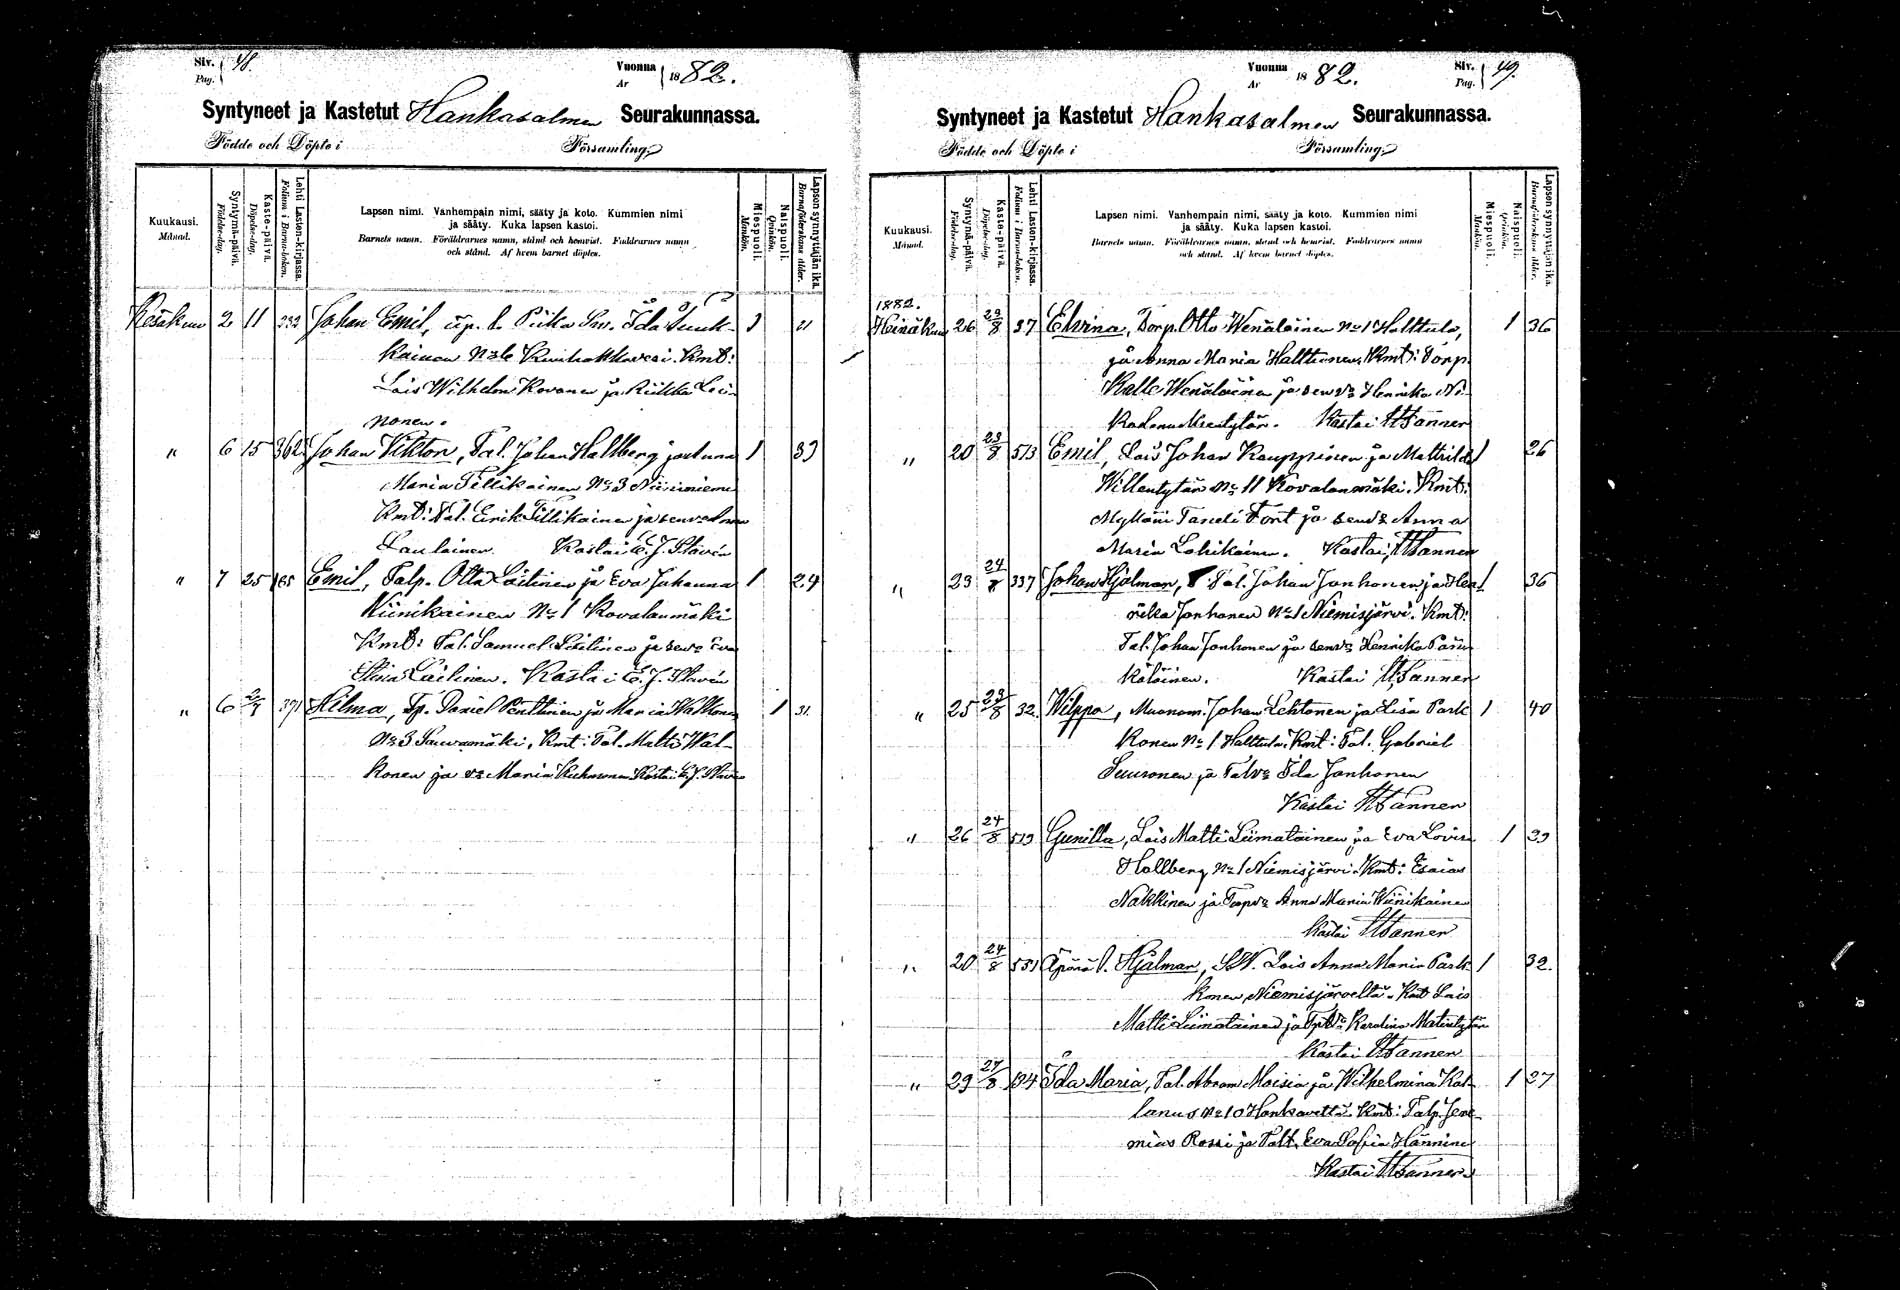 Siv. 48.
Pag.
Vuonna 1882.
År
Syntyneet ja Kastetut Hankasalmen Seurakunnassa.
Födde och Döpte i Församling
Kuukausi.
Månad.
Syntymä-päivä.
Födelse-dag.
Kaste-päivä.
Döpelse-dag.
Lehti Lasten-kirjassa.
Folium i Barna-boken.
Lapsen nimi. Vanhempain nimi, sääty ja koto. Kummien nimi
ja sääty. Kuka lapsen kastoi.
Barnets namn. Föräldrarnes namn, stånd och hemvist. Faddrarnes namn
och stånd. Af hvem barnet döptes.
Miespuoli.
Mankön.
Naispuoli.
Qvinkön.
Lapsen synnyttäjän ikä.
Barnaföderskans ålder.
Kesäkuu 2 11 232 Johan Emil, äp. l. Piika Ida 21
kainen No 6 Kuuhankavesi. Kmt:
Lois Wilhelm Kovanen ja Riikka Lei-
nonen.
" 6 15 362 Johan Viktor, Tal. Johan Hallberg ja Anna 1
Maria Tillikainen No 3 Niininiemi
Kmt: Tal. Eirik Tillikainen ja sen v:o Anna
Laulainen Kastai E. J. Slavén
" 7 25 Emil, Talp. Otto Laitinen ja Eva Johanna 1 29
Niinikainen No 1 Kovalanmäki
Kmt: Tal. Samuel Laitinen ja sen v:o Eva
Stiina Laitinen. Kastai E. J. Slavén
" 6 371 Hilma, Tp. Daniel Penttinen ja Maria Walkonen 1 31.
No 3 Sauvamäki, Kmt: Tal. Matti Wal-
konen ja v:o Maria Kastai E. J. Slavén
Siv. 49.
Pag.
Vuonna 1882.
År
Syntyneet ja Kastetut Hankasalmen Seurakunnassa.
Födde och Döpte i Församling
Kuukausi.
Månad.
Syntymä-päivä.
Födelse-dag.
Kaste-päivä.
Döpelse-dag.
Lehti Lasten-kirjassa.
Folium i Barna-boken.
Lapsen nimi. Vanhempain nimi, sääty ja koto. Kummien nimi
ja sääty. Kuka lapsen kastoi.
Barnets namn. Föräldrarnes namn, stånd och hemvist. Faddrarnes namn
och stånd. Af hvem barnet döptes.
Miespuoli.
Mankön.
Naispuoli.
Qvinkön.
Lapsen synnyttäjän ikä.
Barnaföderskans ålder.
1882.
Heinäkuu 26 23/8 37 Elvina, Torp. Otto Wenäläinen No 1 Halttula, 1 36
ja Anna Maria Halttunen. Kmt: Torp.
Kalle Wenäläinen ja sen v:o Henrika Ni-
Kastai Wannen
" 20 23/8 513 Emil, Lois Johan Kauppinen ja Mathilda 1 26
Willentytär No 11 Kovalanmäki. Kmt:
Mylläri Taneli Tort ja sen v:o Anna
Maria Lohikainen. Kastai Wannen
" 23 24/8 337 Johan Hjalmar, Tal. Johan Janhonen ja Hen- 1 36
rikka Janhonen No 1 Niemisjärvi. Kmt:
Tal. Johan Janhonen ja sen v:o Henrika Pasu-
Kastai Wannen
" 25 23/8 32 Wilppo, Muonam. Johan Lehtonen ja Lisa Park- 1 40
konen No 1 Halttula. Kmt: Tal. Gabriel
Suuronen ja Tal v:o Ida Janhonen
Kastai Wannen
" 26 24/8 519 Gunilla, Lois Matti Liimatainen ja Eva Lovisa 1 39
Hallberg No 1 Niemisjärvi. Kmt: Esaias
Nakkinen ja Torp v:o Anna Maria Wiinikainen
Kastai Wannen
" 20 24/8 551 Äpärä l. Hjalmar, Lois Anna Maria Park- 1 32.
konen Niemisjärveltä. Kmt Lois
Matti Liimatainen ja Karolina Matintytär
Kastai Wannen
" 29 27/8 194 Ida Maria, Tal. Abram Moisio ja Wilhelmina Kat- 1 27
lanus No 10 Hankavettä. Kmt: Talp. Jere-
mias Rossi ja Talt. Eva Sofia Hänninen
Kastai Wannen